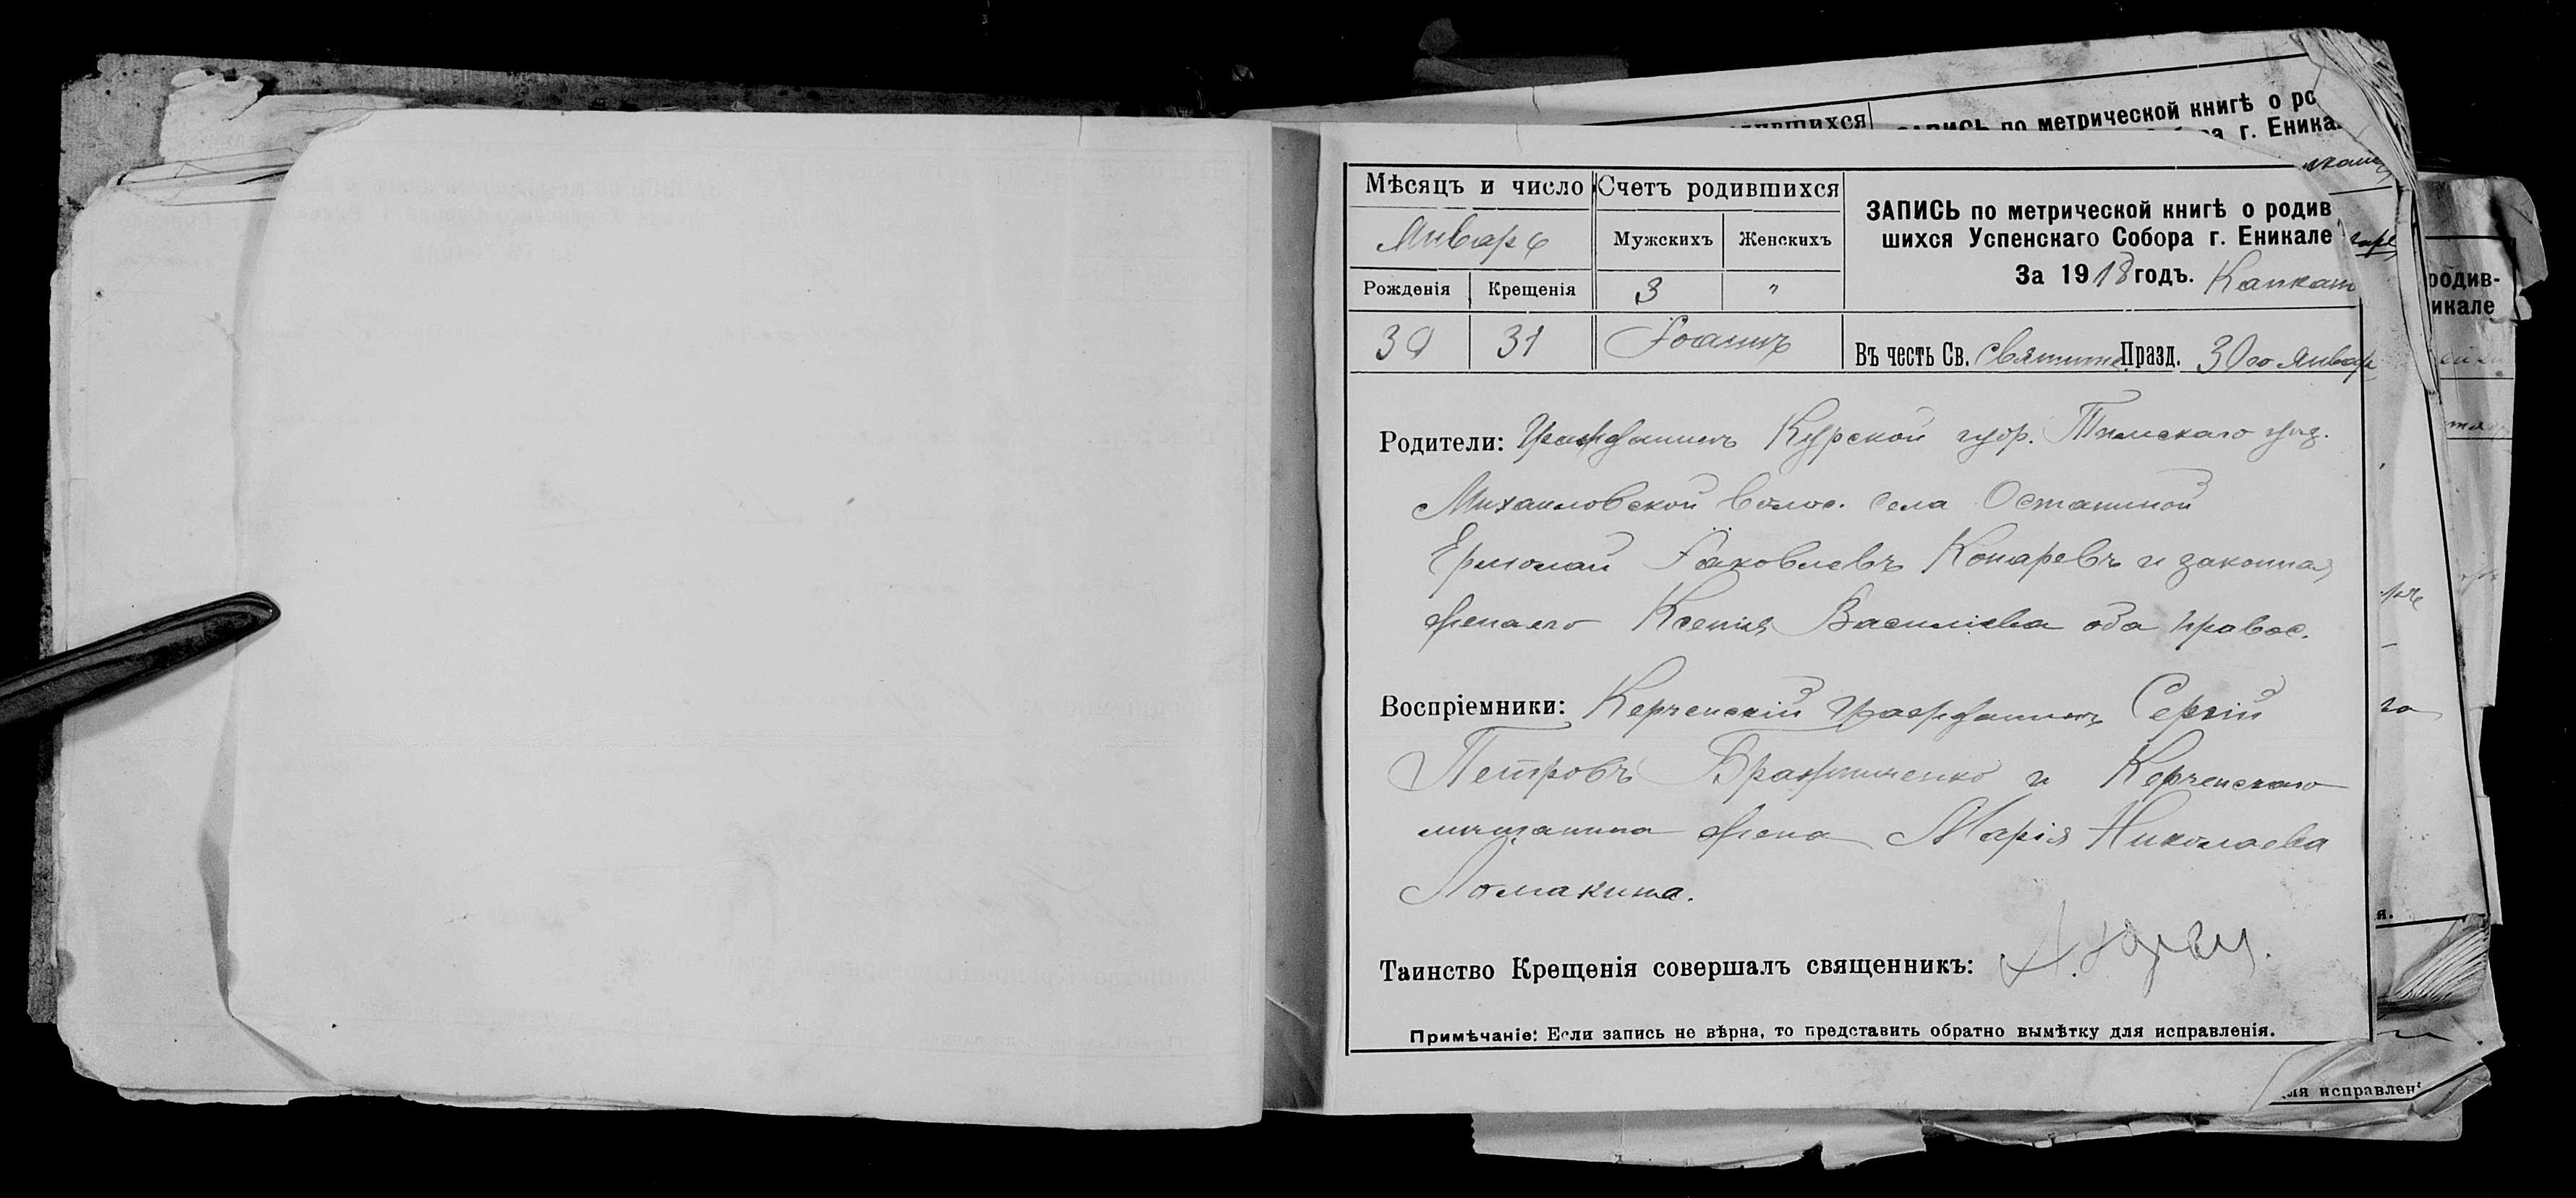 одившихся
ЗАПИСЬ по метрической книгѣ о ро
ра г. Еника
Мѣсяцъ и число
Счетъ родившихся
ЗАПИСЬ по метрической книгѣ о родив
шихся Успенскаго Собора г. Еникале
За 1918 годъ. Капкан
Январь
Мужскихъ
Женскихъ
Рожденія
Крещенія
3
"
30
31
Іоаннъ
Въ честь Св. Святите Празд. 30го Январ
родив-
икале
Родители: Гражданинъ Курской губ. Тимскаго уѣз.
Михаиловской волос. села Останиной
Ермолай Іаковлевъ Конаревъ и законная
жена его Ксенія Василіева оба правос.
Воспріемники: Керченскій гражданинъ Сергій
Петровъ Бражниченко и Керченскаго
мѣщанина жена Марія Николаева
Ломакина.
Таинство Крещенія совершалъ священникъ:
Примѣчаніе: Если запись не вѣрна, то представить обратно вымѣтку для исправленія.
ля исправлені